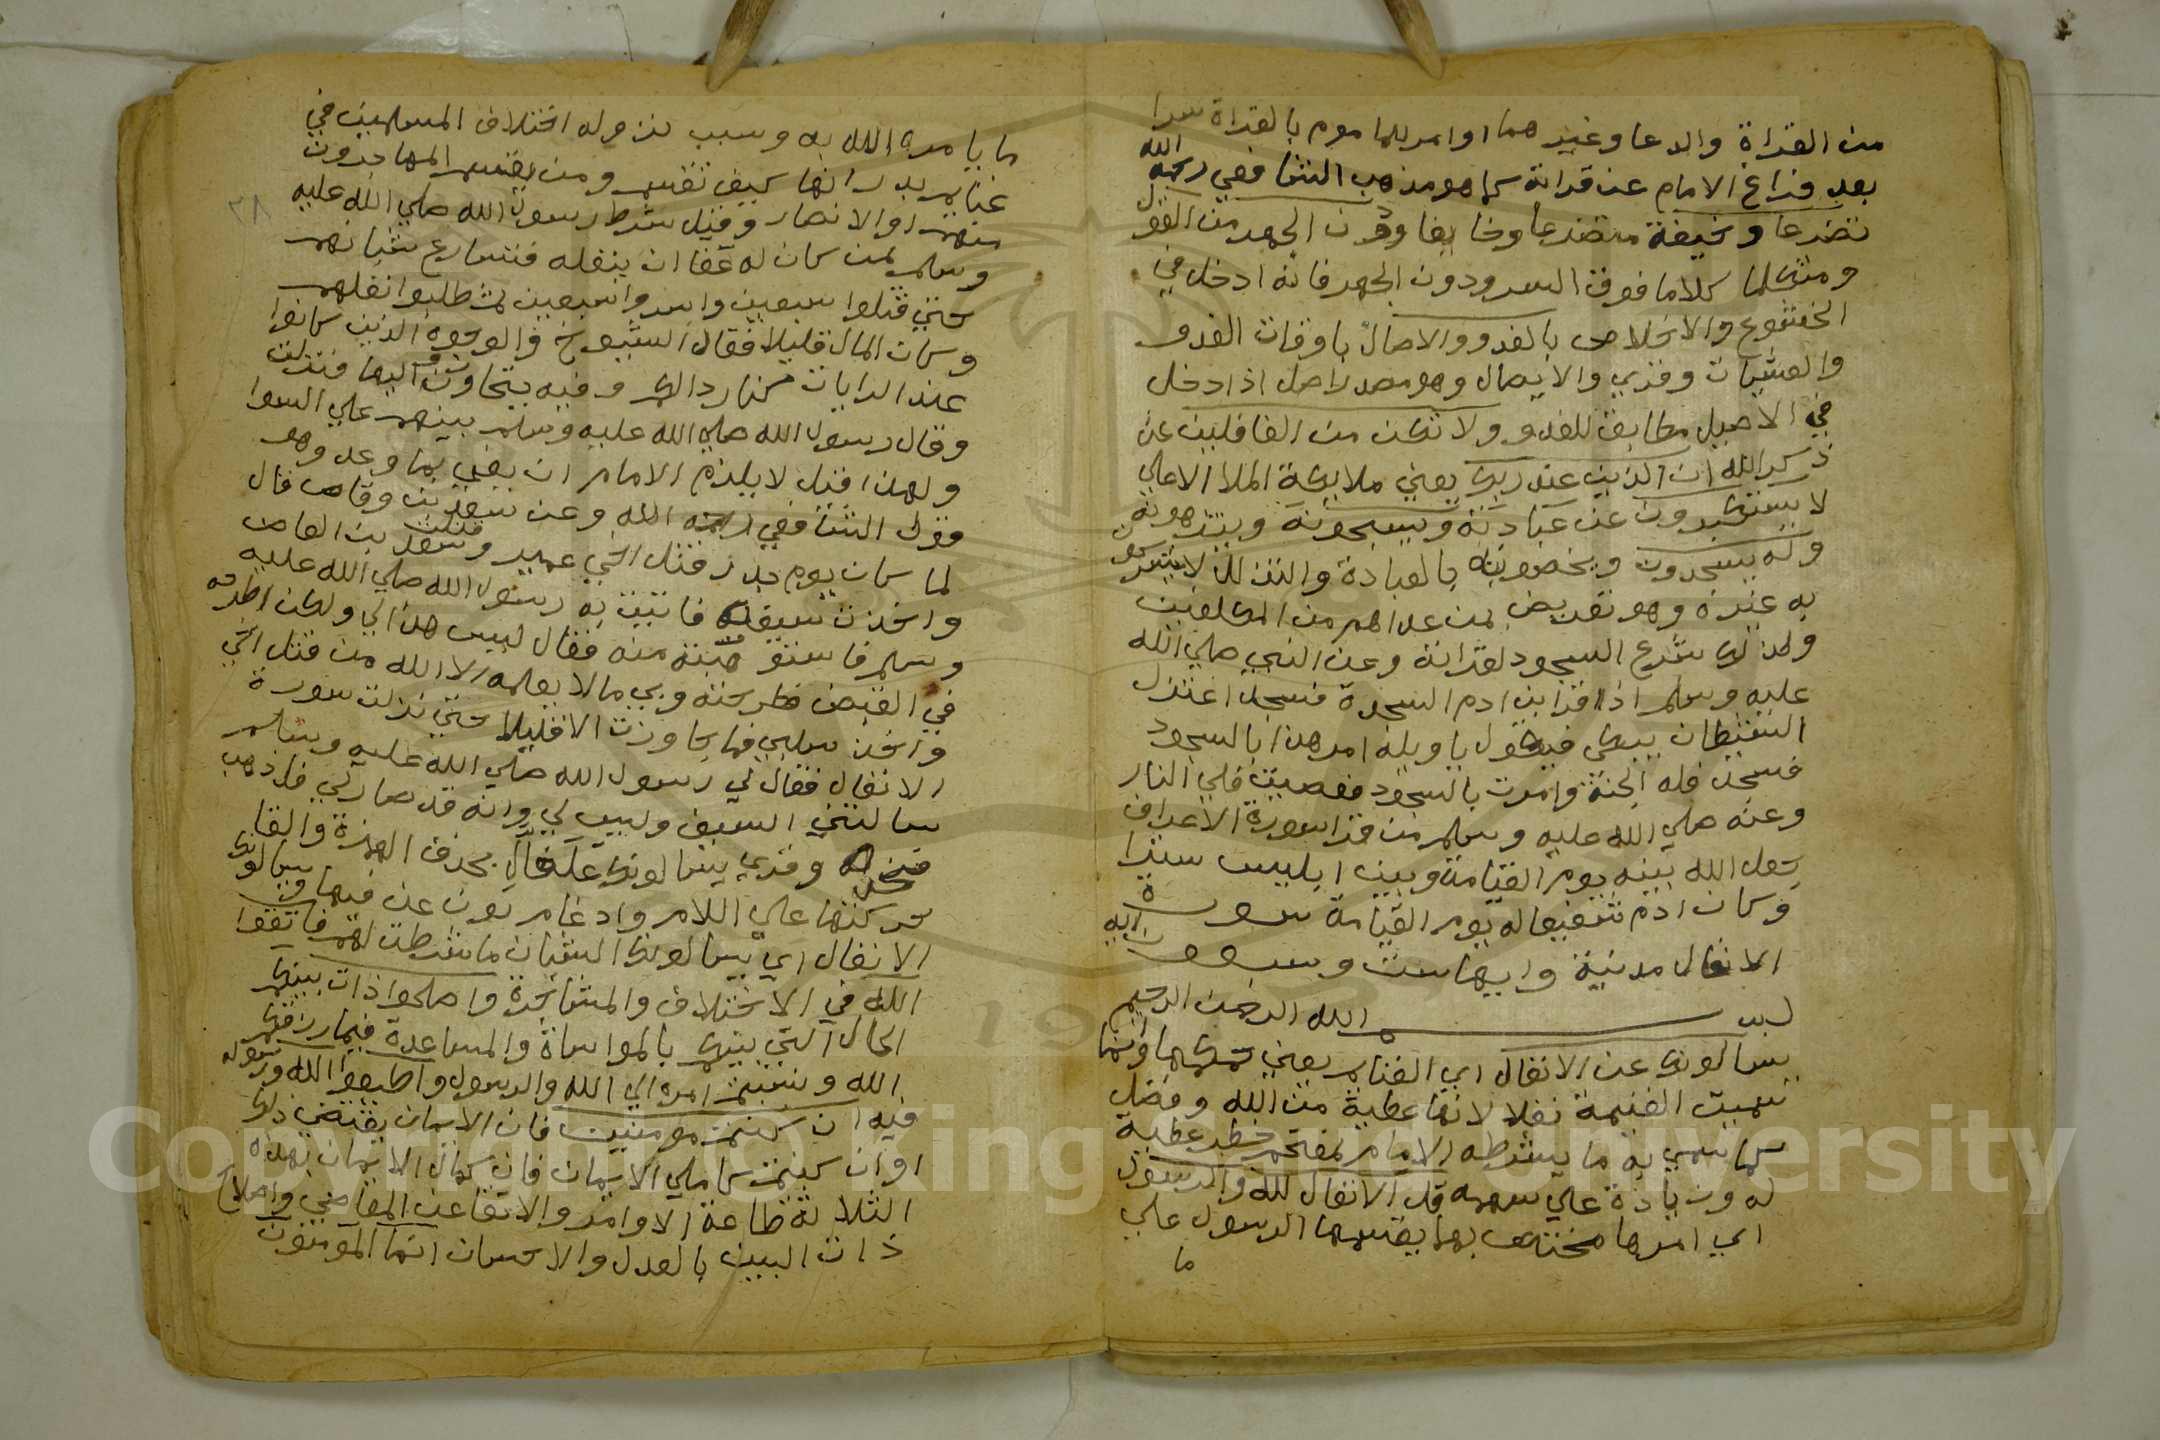 من القراة والدعا وغيرهما او امر للماموم بالقراة سرا
بعد فراغ الامام عن قراته كما هو مذهب الشافعي رحمه الله
تضرعا وخيفة متضرعا وخايفا ودون الجهر من القول
ومتكلما كلاما فوق السر ودون الجهر فانه ادخل في
الخشوع والاخلاص بالغدو والاصال باوقات الغدو
والعشيات وقري والايصال وهو مصدر اصل اذا دخل
في الاصيل مطابق للغدو ولا تكن من الغافلين عن
ذكر الله ان الذين عند ربك يعني ملايكة الملا الاعلي
لا يستكبرون عن عبادته ويسبحونه وينزهونه
وله يسجدون ويخصونه بالعبادة والتذلل لا يشركون
به غيره وهو تعريض لمن عداهم من المكلفين
ولذلك شرع السجود لقراته وعن النبي صلي الله
عليه وسلم اذا قرا ابن ادم السجدة فسجد اعتزل
الشيطان يبكي فيقول يا ويله امر هذا بالسجود
فسجد فله الجنة وامرت بالسجود فعصيت فلي النار
وعنه صلي الله عليه وسلم من قرا سورة الاعراف
جعل الله بينه يوم القيامة وبين ابليس سترا
وكان ادم شفيعا له يوم القيامة سورة
الانفال مدنية وايها ست وسبعون اية
بسم الله الرحمن الرحيم
يسالونك عن الانفال اي الغنايم يعني حكمها وانما
سميت الغنيمة نفلا لانها عطية من الله وفضل
كما سمي به ما يشرطه الامام لمقتحم خطر عطية
له وزيادة علي سهمه قل الانفال لله والرسول
اي امرها مختص بهما يقسمها الرسول علي
ما
ما يامره الله به وسبب نزوله اختلاف المسلمين في
غنايم بدر انها كيف تقسم ومن يقسم المهاجرون
منهم او الانصار وقيل شرط رسول الله صلي الله عليه
٣٨
وسلم لمن كان له غنا ان ينفله فتسارع شبانهم
حتي قتلوا سبعين واسروا سبعين ثم طلبوا نفلهم
وكان المال قليلا فقال الشيوخ والوجوه الذين كانوا
عند الرايات كنا ردا لكم وفيه يتحاوزون اليها فنزلت
وقال رسول الله صلي الله عليه وسلم بينهم علي السوا
ولهذا قيل لا يلزم الامام ان يفي بما وعد وهو
قول الشافعي رحمه الله وعن سعد بن وقاص قال
لما كان يوم بدر قتل اخي عمير وقتلت سعد بن العاص
واخذت سيفه فاتيت به رسول الله صلي الله عليه
وسلم فاستوهبته منه فقال ليس هذا لي ولكن اطرحه
في القبض فطرحته وبي مالا يعلمه الا الله من قتل اخي
واخذ سلبي فما جاوزت الا قليلا حتي نزلت سورة
الانفال فقال لي رسول الله صلي الله عليه وسلم
سالتني السيف وليس لي وانه قد صار لي فاذهب
فخذه وقري يسالونك علنفال بحذف الهمزة والقا
حركتها علي اللام وادغام نون عن فيها ويسالونك
الانفال اي يسالونك الشبان ما شرطت لهم فاتقوا
الله في الاختلاف والمشاجرة واصلحوا ذات بينكم
الحال التي بينكم بالمواساة والمساعدة فيما رزقكم
الله وتسليم امره الي الله والرسول واطيعوا الله ورسوله
فيه ان كنتم مومنين فان الايمان يقتضي ذلك
او ان كنتم كاملي الايمان فان كمال الايمان بهذه
الثلاثة طاعة الاوامر والاتقا عن المعاصي واصلاح
ذات البين بالعدل والاحسان انما المومنون
Copyright © King Saud University